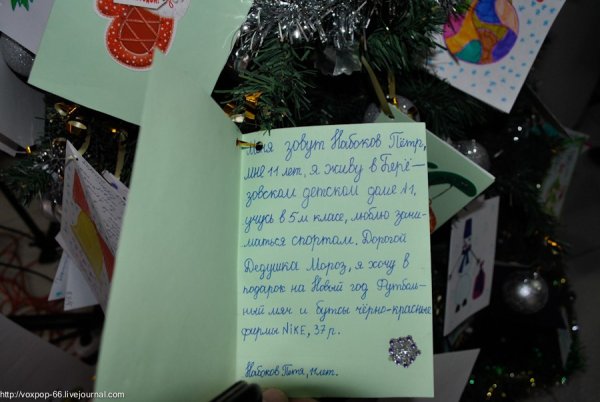 Меня зовут Набоков Пётр,
мне 11 лет, я живу в Берё-
зовском детском доме №1,
учусь в 5м класе, люблю зани-
маться спортом. Дорогой
Дедушка Мороз, я хочу в
подарок на Новый год Футболь-
ный мяч и бутсы чёрно-красные
фирмы NIKE, 37 р.
Набоков Петя, 11 лет.
http://voxpop-66.livejournal.com/